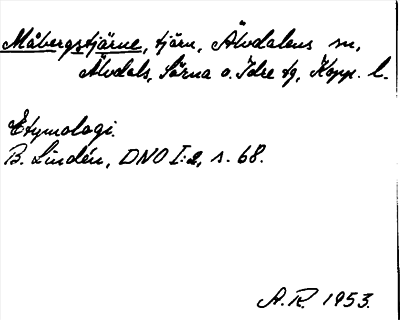 Måbergstjärne, tjärn, Älvdalens sn,
Älvdals, Särna o. Idre tg, Kopp. l.
Etymologi.
B. Lindén, DNO I:2, s. 68.
A.R. 1953.